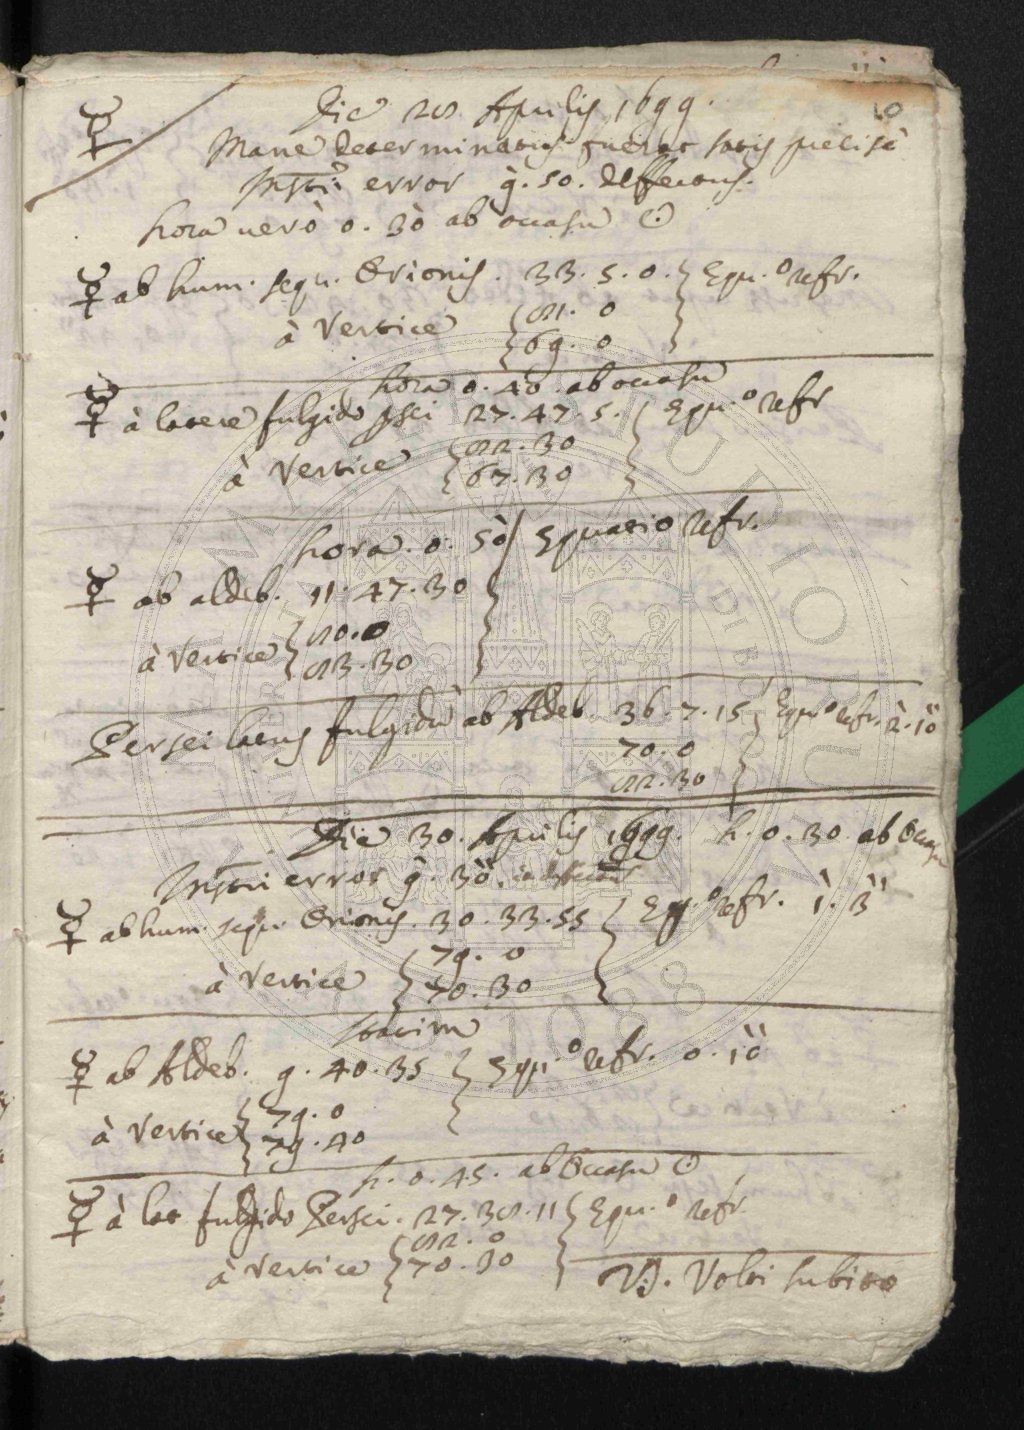 10
☿ Die 28 Aprilis 1699.
Mane determinatus fuerat satis precisè
Instri error 9. 50. deffectus.
hora uerò 0. 30 ab occasu ☉
☿ ab hum. sequ. Orionis. 33. 5. 0. } Equ.º refr.
à Vertice { 81. 0
{ 69. 0
hora 0. 40. ab occasu
☿ à latere fulgido Persei 27. 47. 5. { Equ.º refr
à Vertice { 82. 30
{ 67. 30
hora. 0. 50 / Equatio refr.
☿ ab aldeb. 11. 47. 30 }
à Vertice { 80. 0
{ 83. 30
Persei latus fulgidu ab Aldeb. 36. 7. 15 } Equº refr. 2. 10
70. 0
82. 30
Die 30. Aprilis 1699. h. 0. 30 ab Occasu
Instri error 9. 30.
☿ ab hum. sequ. Orionis. 30. 33. 55 { Equ.º refr. 1. 3
à Vertice { 79. 0
{ 70. 30
statim
☿ ab Aldeb. 9. 40. 35 } Equ.º refr. 0. 10
à Vertice { 79. 0
{ 79. 40
h. 0. 45. ab Occasu ☉
☿ à lat fulgido Persei. 27. 38. 11 { Equ.º refr.
à Vertice { 82. 0
{ 70. 30
V.S. Volti subito